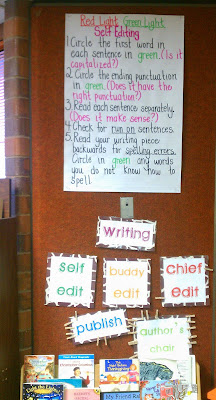 Red Light Green Light
Self Editing
1. Circle the first word in
each sentence in green. (Is it
capitalized?)
2. Circle the ending punctuation
in green. (Does it have the
right punctuation?)
3. Read each sentence separately.
(Does it make sense?)
4. Check for run on sentences.
5. Read your writing piece
backwards for spelling errors.
Circle in green any words
you do not know how to
spell.
writing
self
edit
buddy
edit
chief
edit
publish
author's
chair